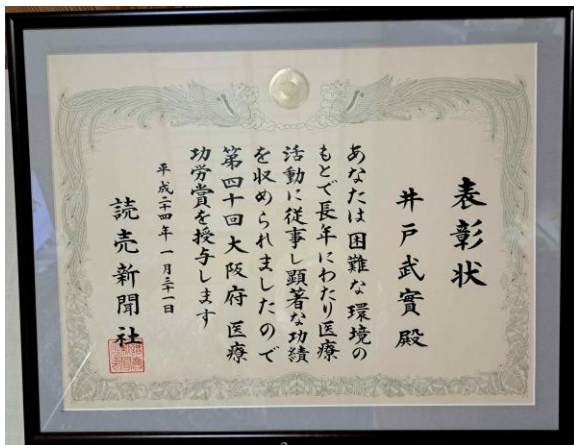 表彰状
井戸武實殿
あなたは困難な環境の
もとで長年にわたり医療
活動に従事し顕著な功績
を収められましたので
第四十回大阪府医療
功労賞を授与します
平成二十四年一月三十一日
読売新聞社